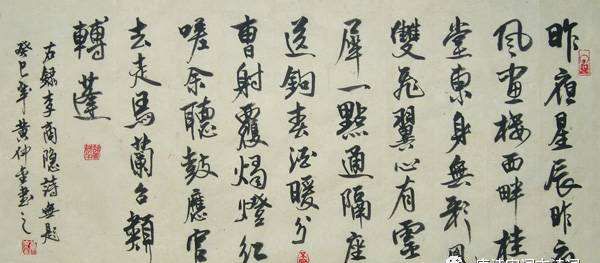 昨夜星辰昨
風畫樓西畔桂
堂東身無彩鳳
雙飛翼心有靈
犀一點通隔座
送鉤春酒暖分
曹射覆燭燈紅
嗟余聽鼓應官
去走馬蘭台類
轉蓬
右錄李商隐詩無題
癸巳年黄仲書之